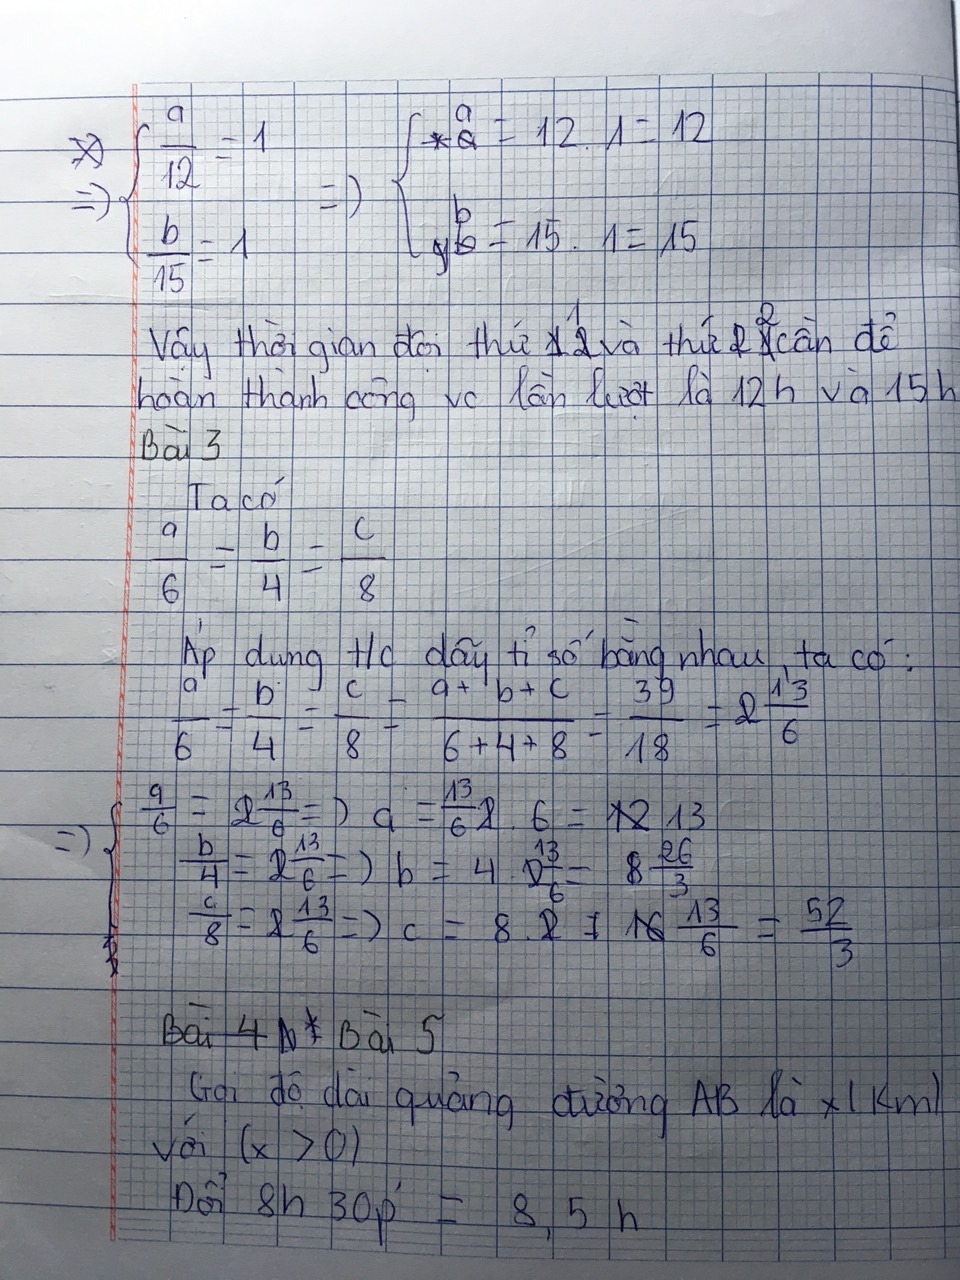 => { a/12 = 1 => { a = 12 . 1 = 12
b/15 = 1 b = 15 . 1 = 15
Vậy thời gian đội thứ 1 và thứ 2 cần để
hoàn thành công vc lần lượt là 12h và 15h
Bài 3
Ta có
a/6 = b/4 = c/8
Áp dung t/c dãy tỉ số bằng nhau, ta có :
a/6 = b/4 = c/8 = a + b + c / 6 + 4 + 8 = 39/18 = 13/6
=> { a/6 = 13/6 => a = 13/6 . 6 = 13
b/4 = 13/6 => b = 4 . 13/6 = 26/3
c/8 = 13/6 => c = 8 . 13/6 = 52/3
Bài 5
Gọi độ dài quảng đường AB là x (Km)
với (x > 0)
Đổi 8h 30p = 8,5 h